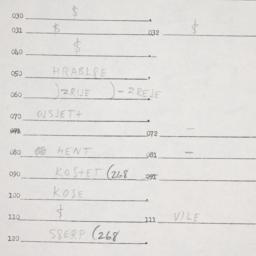 030 $
031 $ 032 $
040 $
050 HRABLPE
060 )2RIJE )-2REJE
070 OJSJET+
071 072 -
080 HENT 081 -
090 KOS+ET (268 091
100 KOJE
110 $ 111 VILE
120 S8ERP (268